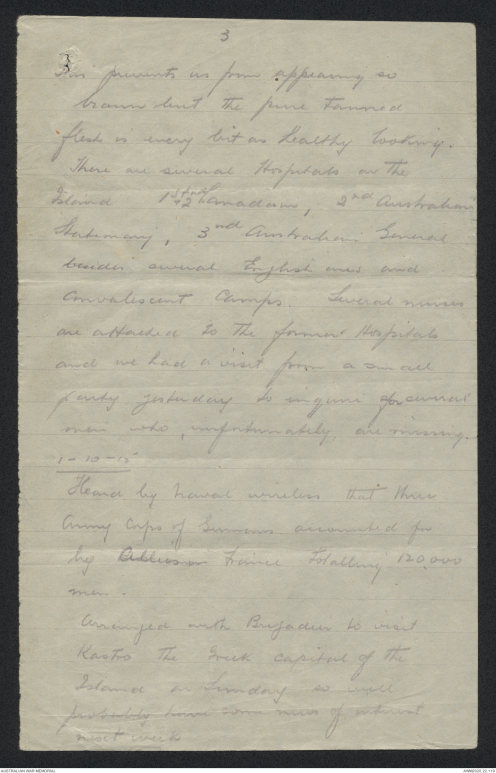 3
3
This prevents us from appearing so
brown but the pure tanned
flesh is every bit as healthy looking.
There are several Hospitals on the
Island 1st and 2nd Canadian, 2nd Australian
Stationary, 3rd Australian General
besides several English ones and
Convalescent Camps. Several nurses
are attached to the former Hospitals
and we had a visit from a small
party yesterday to inquire for several
men who, unfortunately, are missing.
1-10-15
Heard by naval wireless that three
Army Corps of Germans accounted for
by Allies in France totalling 120,000
men.
Arranged with Brigadier to visit
Kastro the Greek capital of the
Island on Sunday so will
probably have some news of interest
next week
AUSTRALIAN WAR MEMORIAL